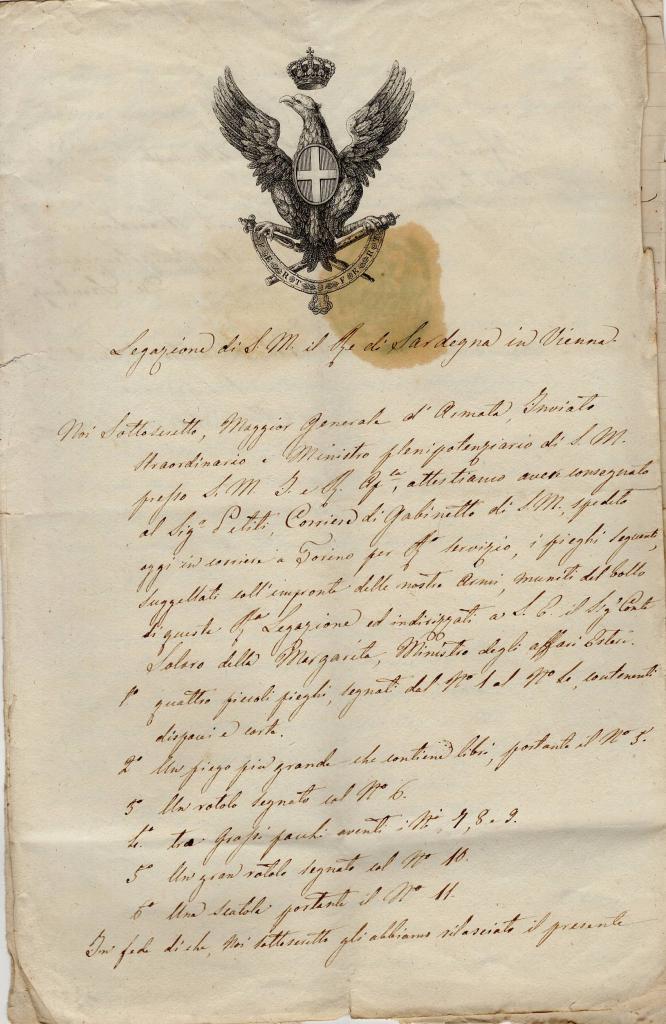 FE · R · T · FE · R · T
Legazione di S. M. il Re di Sardegna in Vienna.
Noi Sottoscritto, Maggior Generale d'Armata, Inviato
straordinario e Ministro plenipotenziario di S. M.
presso S. M. I. e R. Ap.ca, attestiamo aver consegnato
al Sig.r Petiti, Corriere di Gabinetto di S. M. spedito
oggi in corriere a Torino per R.o servizio, i pieghi seguenti,
suggellati coll'impronto delle nostre Armi, muniti del bollo
di questa R.a Legazione ed indirizzati a S. E. il Sig.r Conte
Solaro della Margarita, Ministro degli affari Esteri.
1.o quattro piccoli pieghi, segnati dal N.o 1 al N.o 4, contenenti
dispacci e carte.
2.o Un piego più grande che contiene libri, portante il N.o 5.
3.o Un rotolo segnato col N.o 6.
4.o tre grossi pacchi aventi i N.i 7, 8 e 9.
5.o Un gran rotolo segnato col N.o 10.
6.o Una scatola portante il N.o 11.
In fede di che, Noi sottoscritto gli abbiamo rilasciato il presente